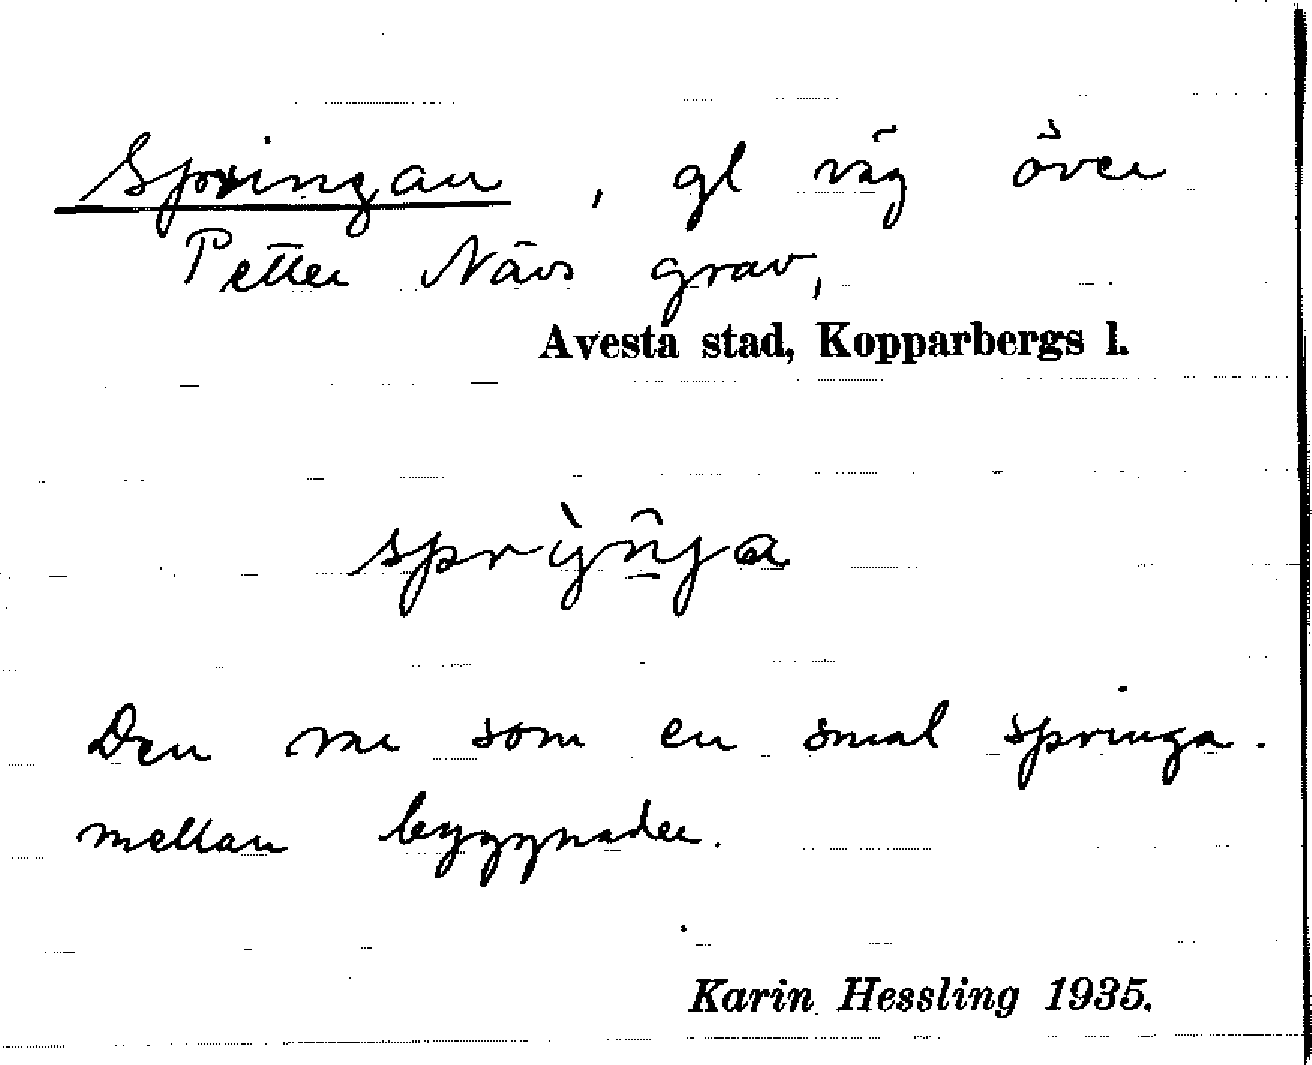 Springan, gl väg över
Petter Nävs grav,
Avesta stad, Kopparbergs l.
Den var som en smal springa
mellan byggnader.
Karin Hessling 1935.